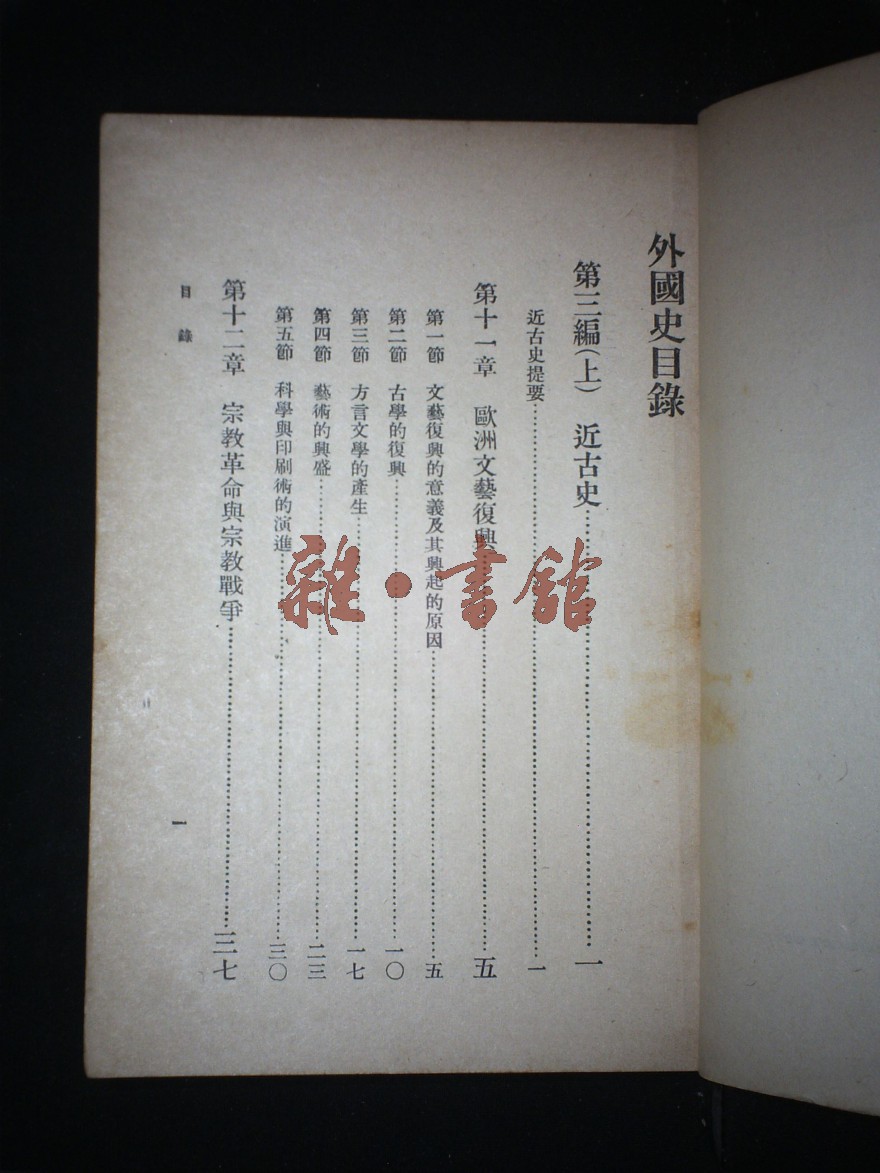 外國史目錄
第三編(上) 近古史……一
近古史提要……一
第十一章 歐洲文藝復興……五
第一節 文藝復興的意義及其興起的原因……五
第二節 古學的復興……一〇
第三節 方言文學的產生……一七
第四節 藝術的興盛……二三
第五節 科學與印刷術的演進……三〇
第十二章 宗教革命與宗教戰爭……三七
目錄
一
雜·書館